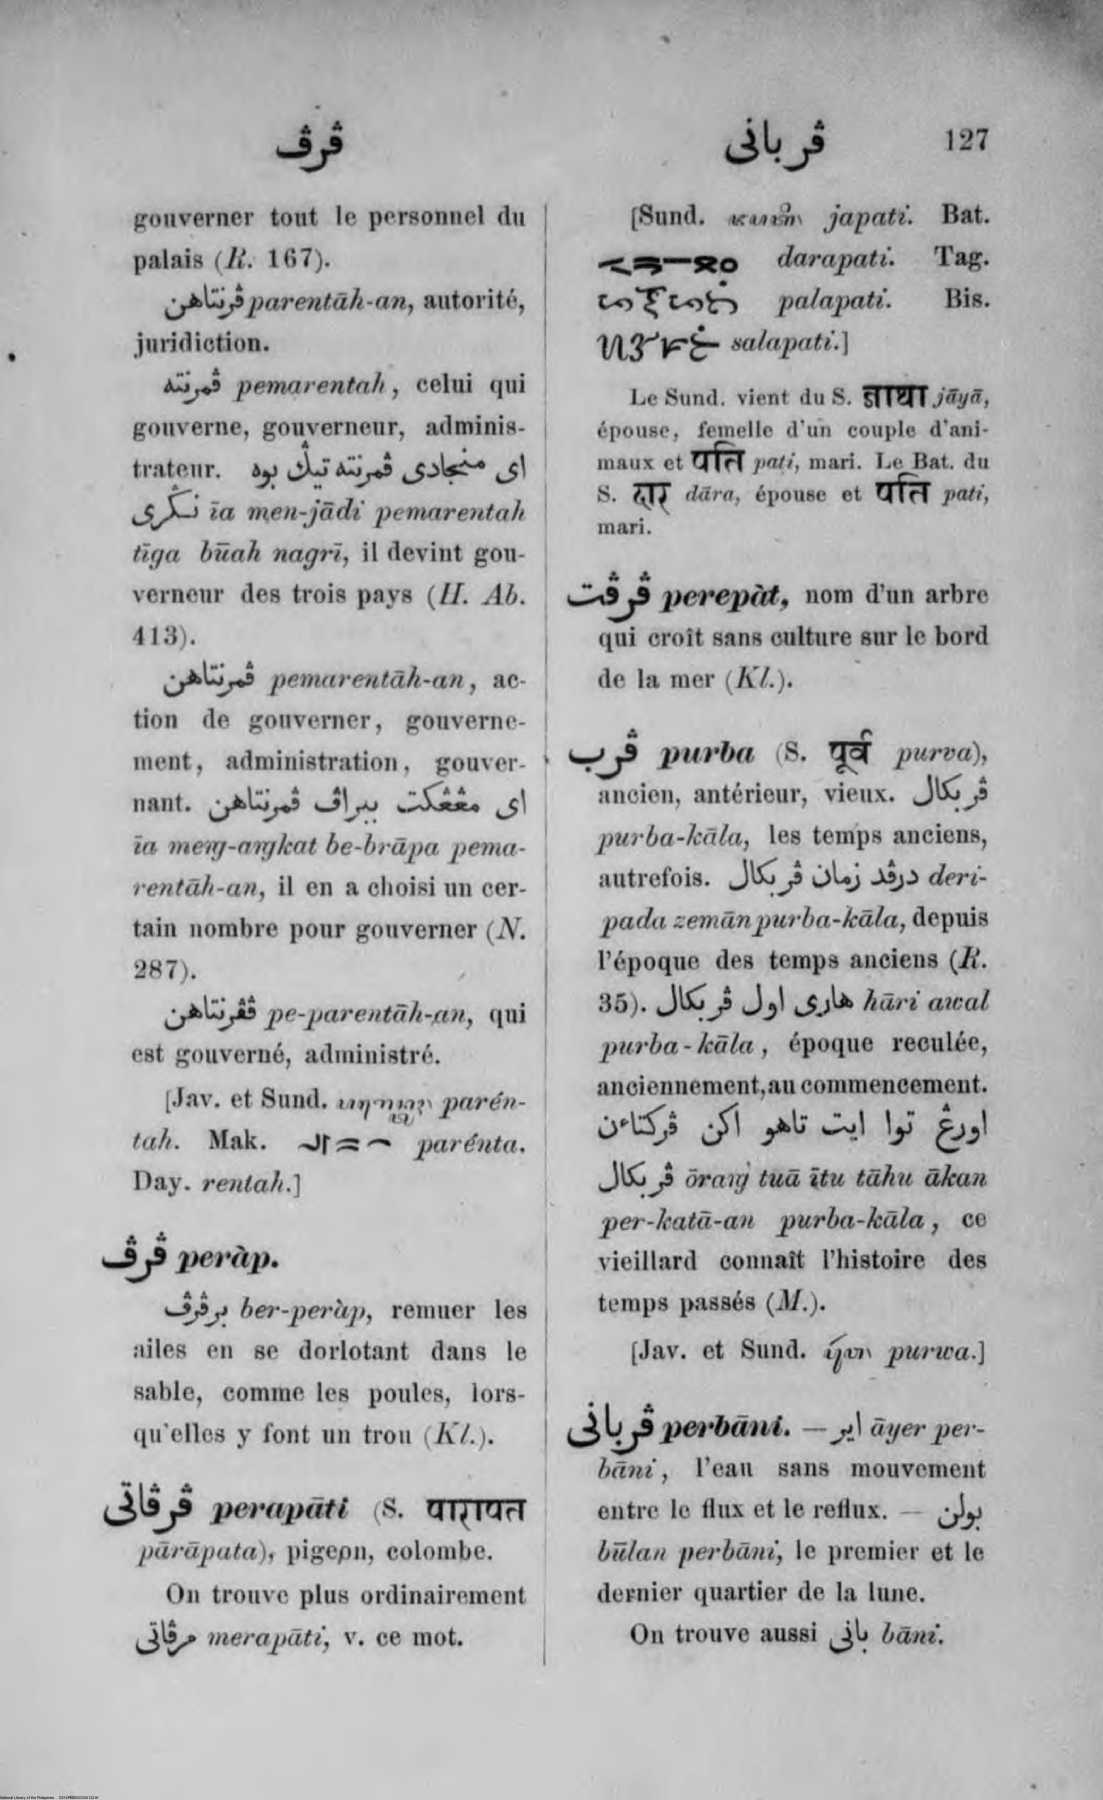 ڤرڤ
ڤرباني 127
gouverner tout le personnel du
palais (R. 167).
ڤرنتاهن parentāh-an, autorité,
juridiction.
ڤمرنته pemarentah, celui qui
gouverne, gouverneur, adminis-
trateur. اي منجادي ڤمرنته تيݢ بوه
نݢري īa men-jādi pemarentah
tīga būah nagrī, il devint gou-
verneur des trois pays (H. Ab.
413).
ڤمرنتاهن pemarentāh-an, ac-
tion de gouverner, gouverne-
ment, administration, gouver-
nant. اي مڠڠكت ببراڤ ڤمرنتاهن
īa meng-angkat be-brāpa pema-
rentāh-an, il en a choisi un cer-
tain nombre pour gouverner (N.
287).
ڤڤرنتاهن pe-parentāh-an, qui
est gouverné, administré.
[Jav. et Sund. parén-
tah. Mak. parénta.
Day. rentah.]
ڤرڤ peràp.
برڤرڤ ber-peràp, remuer les
ailes en se dorlotant dans le
sable, comme les poules, lors-
qu'elles y font un trou (Kl.).
ڤرڤاتي perapāti (S. पारापत
pārāpata), pigeon, colombe.
On trouve plus ordinairement
مرڤاتي merapāti, v. ce mot.
[Sund. japati. Bat.
darapati. Tag.
palapati. Bis.
salapati.]
Le Sund. vient du S. jāyā,
épouse, femelle d'un couple d'ani-
maux et पति pati, mari. Le Bat. du
S. दार dāra, épouse et पति pati,
mari.
ڤرڤت perepàt, nom d'un arbre
qui croît sans culture sur le bord
de la mer (Kl.).
ڤرب purba (S. पूर्व purva),
ancien, antérieur, vieux. ڤربكال
purba-kāla, les temps anciens,
autrefois. درڤد زمان ڤربكال deri-
pada zemān purba-kāla, depuis
l'époque des temps anciens (R.
35). هاري اول ڤربكال hāri awal
purba-kāla, époque reculée,
anciennement, au commencement.
اورڠ توا ايت تاهو اكن ڤركتاءن
ڤربكال ōrang tuā ītu tāhu ākan
per-katā-an purba-kāla, ce
vieillard connaît l'histoire des
temps passés (M.).
[Jav. et Sund. purwa.]
ڤرباني perbāni. — اير āyer per-
bāni, l'eau sans mouvement
entre le flux et le reflux. — بولن
būlan perbāni, le premier et le
dernier quartier de la lune.
On trouve aussi باني bāni.